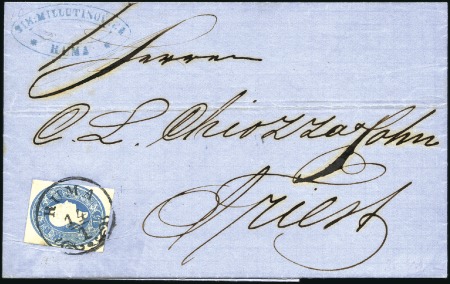 SIM. MILLUTINOVICH
RUMA
Herren
C. L. Chiozza & Sohn
Triest
RUMA